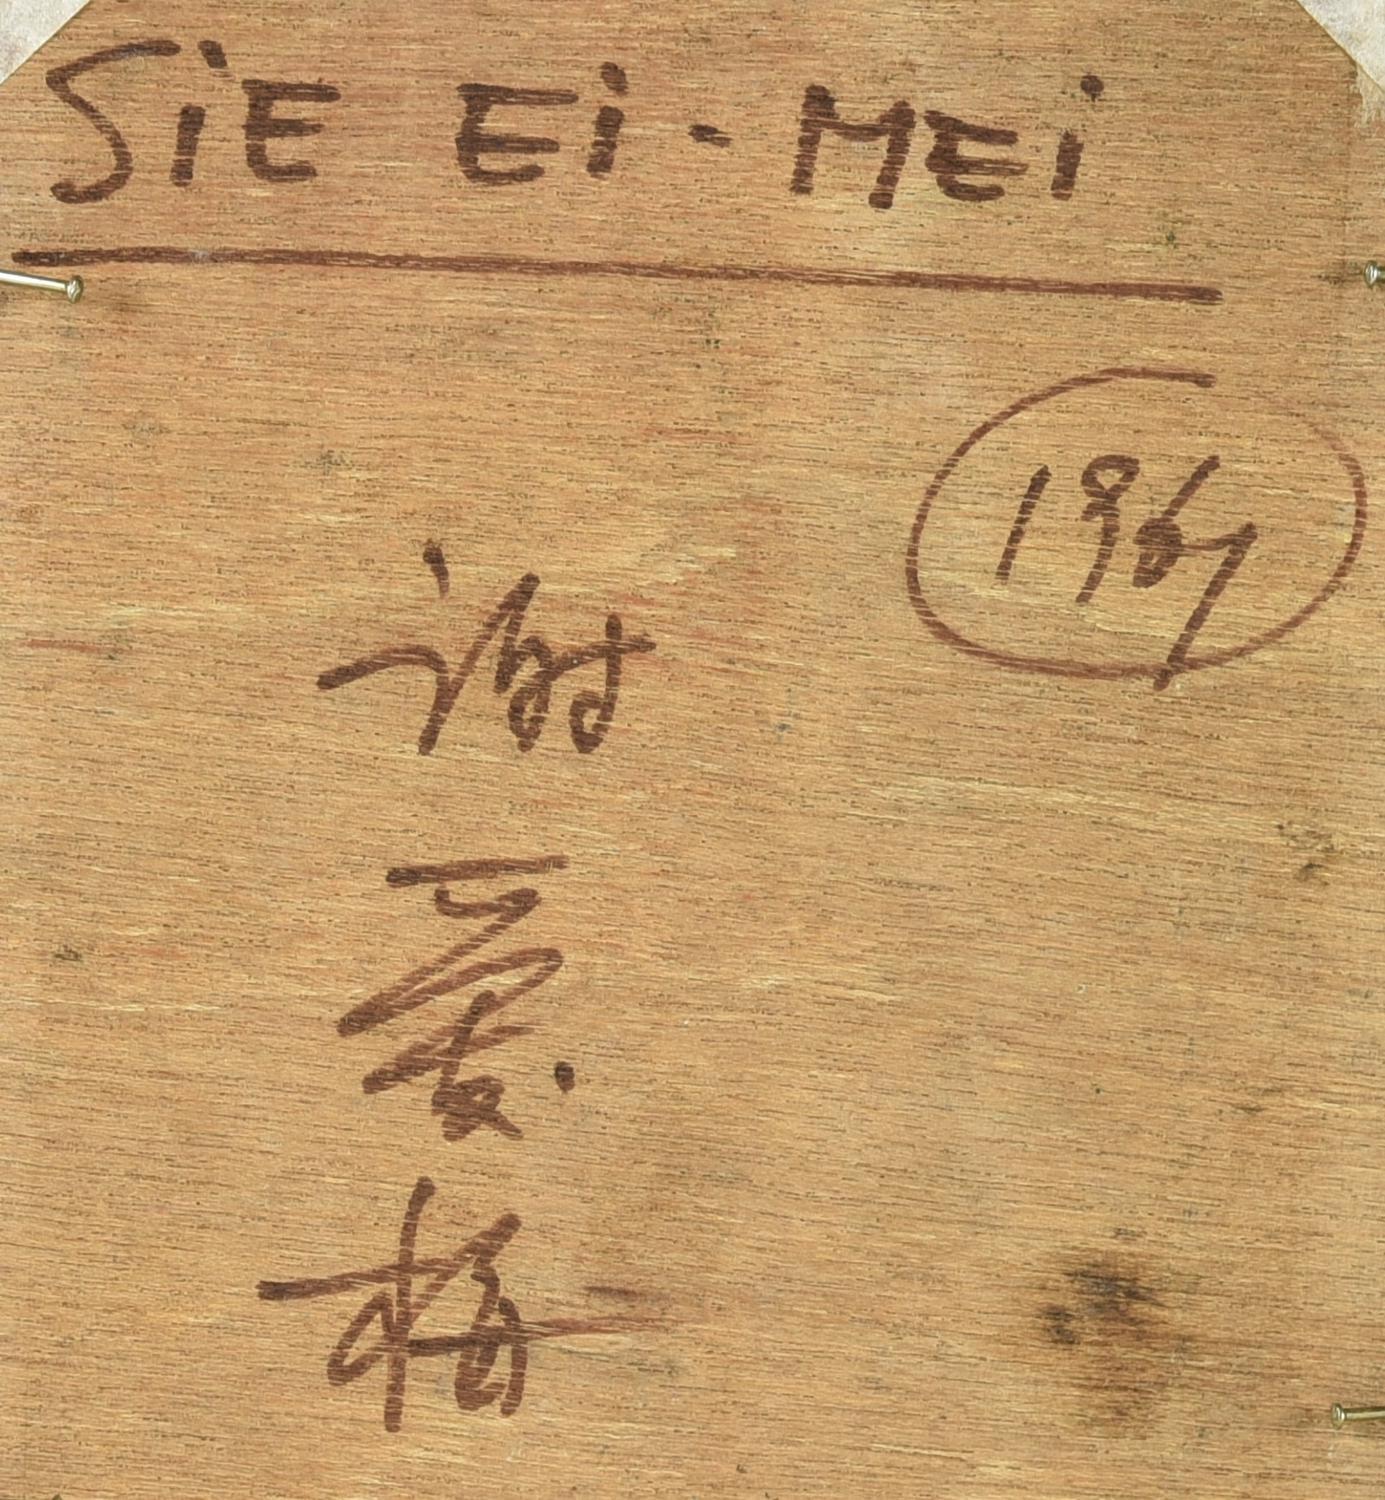 SiE Ei-MEi
1967
谢
爱
梅